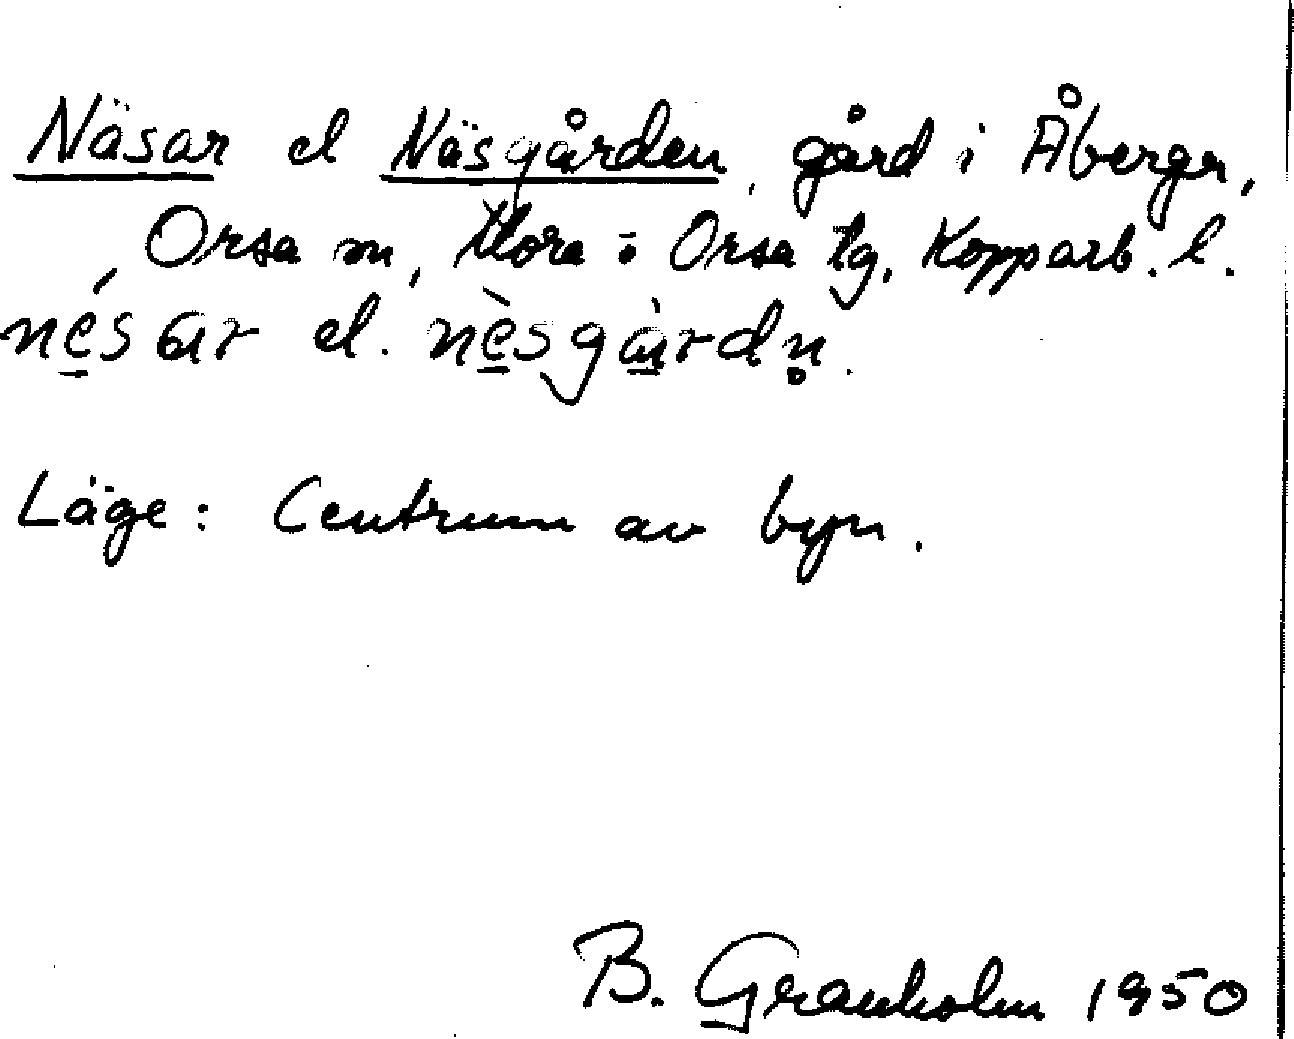 Näsar el Näsgården, gård i Åberga,
Orsa sn, Mora o Orsa tg, Kopparb. l.
né̱sar el. nè̱sgà̱rdn̥.
Läge: Centrum av byn.
B. Granholm 1950